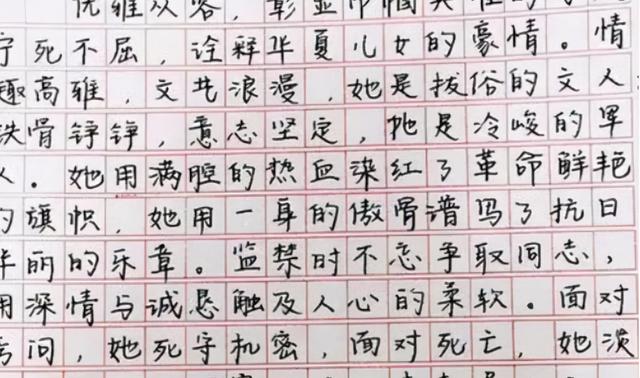 优雅从容，彰显巾帼
宁死不屈，诠释华夏儿女的豪情。情
趣高雅，文艺浪漫，她是拔俗的文人
铁骨铮铮，意志坚定，她是冷峻的军
人。她用满腔的热血染红了革命鲜艳
的旗帜，她用一身的傲骨谱写了抗日
丽的乐章。监禁时不忘争取同志，
用深情与诚恳触及人心的柔软。面对
问，她死守机密，面对死亡，她淡